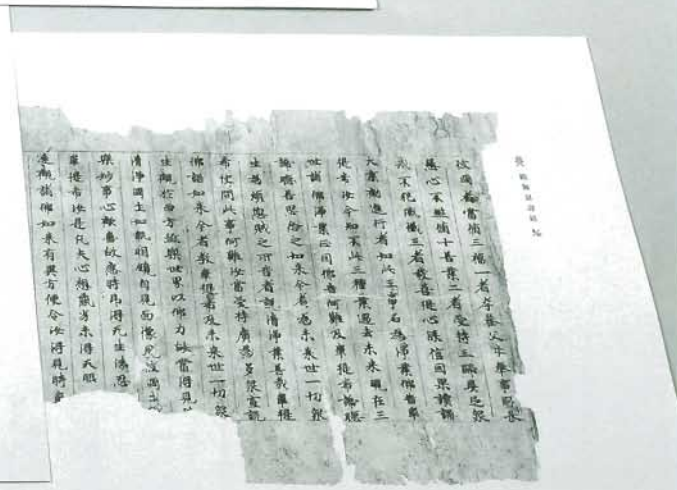 觀無量壽經
彼國者當脩三福一者孝養父母奉事師長
慈心不煞脩十善業二者受持三歸具足眾
戒不犯威儀三者發菩提心深信因果讀誦
大乘勸進行者如此三事名為淨業佛告韋
提希汝今知不此三種業過去未來現在三
世諸佛淨業正因佛告阿難及韋提希諦聽
諦聽善思念之如來今者為未來世一切眾
生為煩惱賊之所害者說清淨業善哉韋提
希快問此事阿難汝當受持廣為多眾宣說
佛語如來今者教韋提希及未來世一切眾
生觀於西方極樂世界以佛力故當得見
清淨國土如執明鏡自見面像見彼國土
樂妙事心歡喜故應時即得无生法忍
韋提希汝是凡夫心想羸劣未得天眼
遠觀諸佛如來有異方便令汝得見時韋